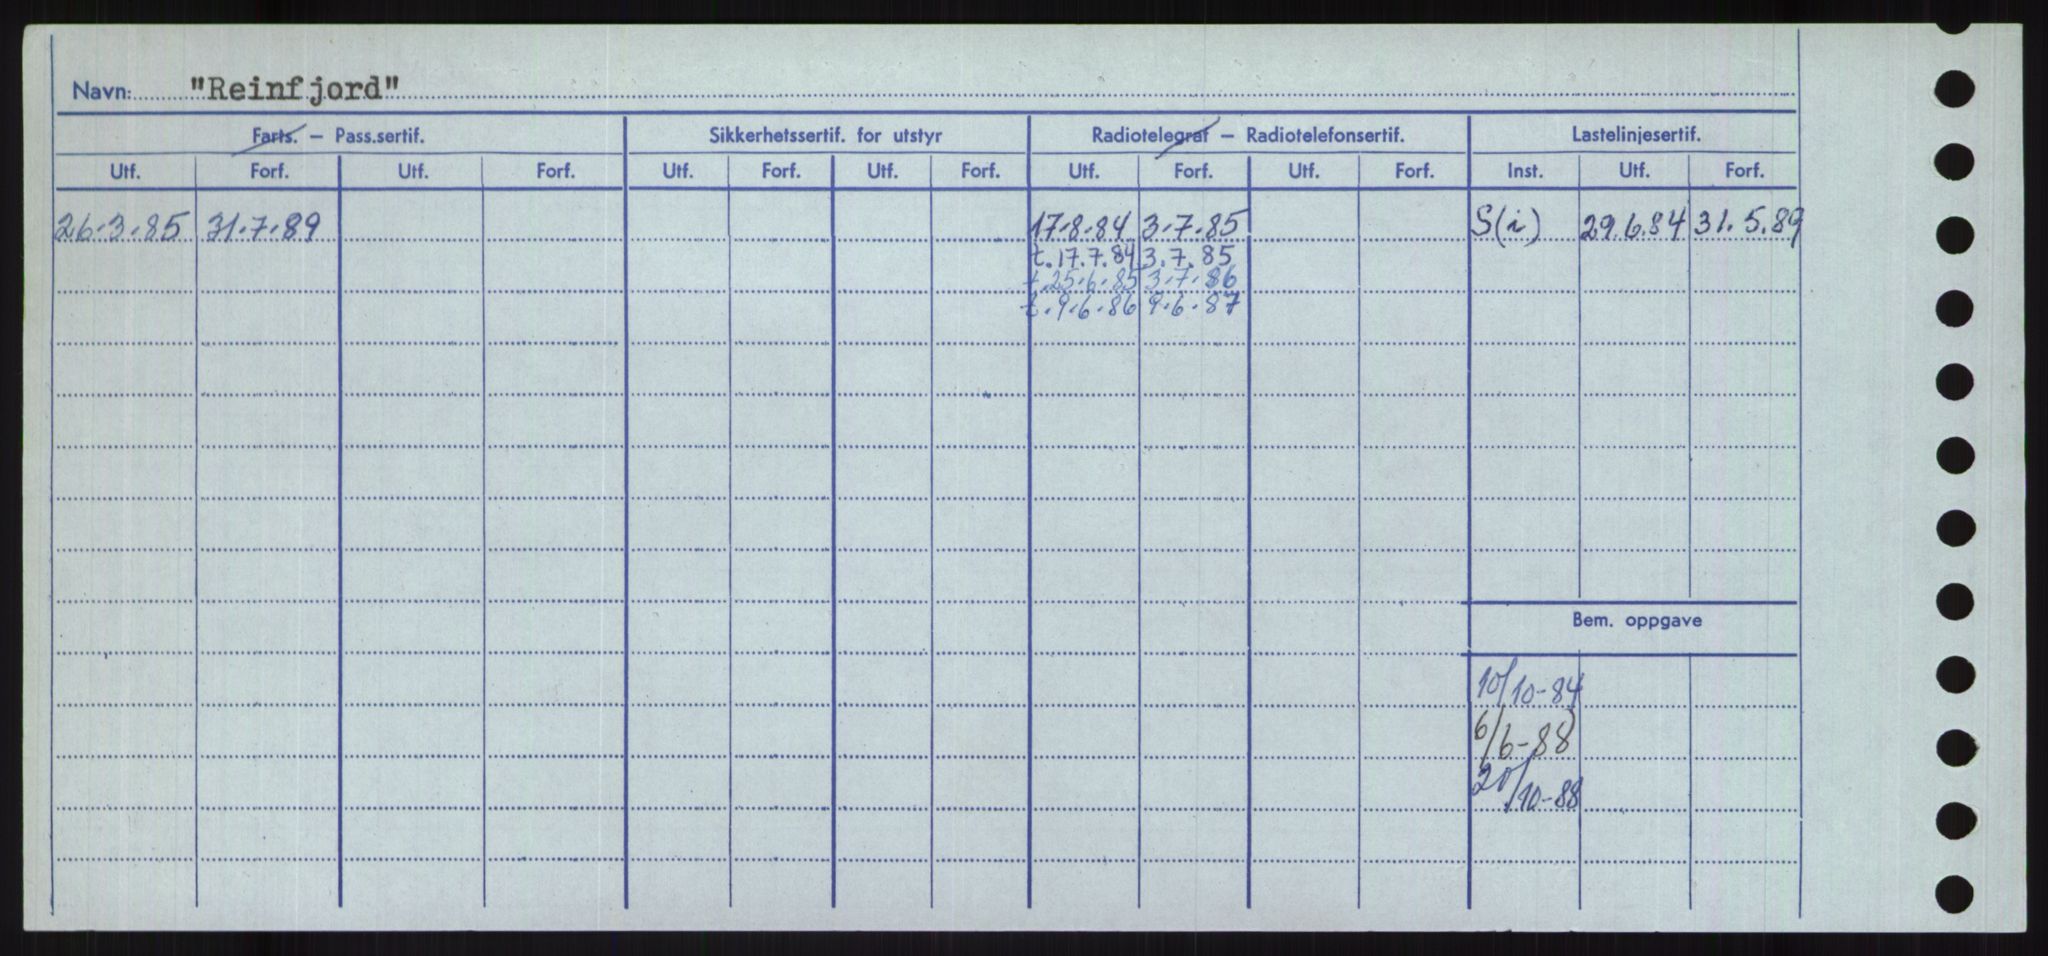 Navn: "Reinfjord"
Farts. – Pass.sertif. Sikkerhetssertif. for utstyr Radiotelegraf – Radiotelefonsertif. Lastelinjesertif.
Utf. Forf. Utf. Forf. Utf. Forf. Utf. Forf. Utf. Forf. Utf. Forf. Inst. Utf. Forf.
26.3.85 31.7.89 17.8.84 3.7.85 S(i) 29.6.84 31.5.89
t.17.7.84 3.7.85
t.25.6.85 3.7.86
t.9.6.86 9.6.87
Bem. oppgave
10/10-84
6/6-88
20/10-88